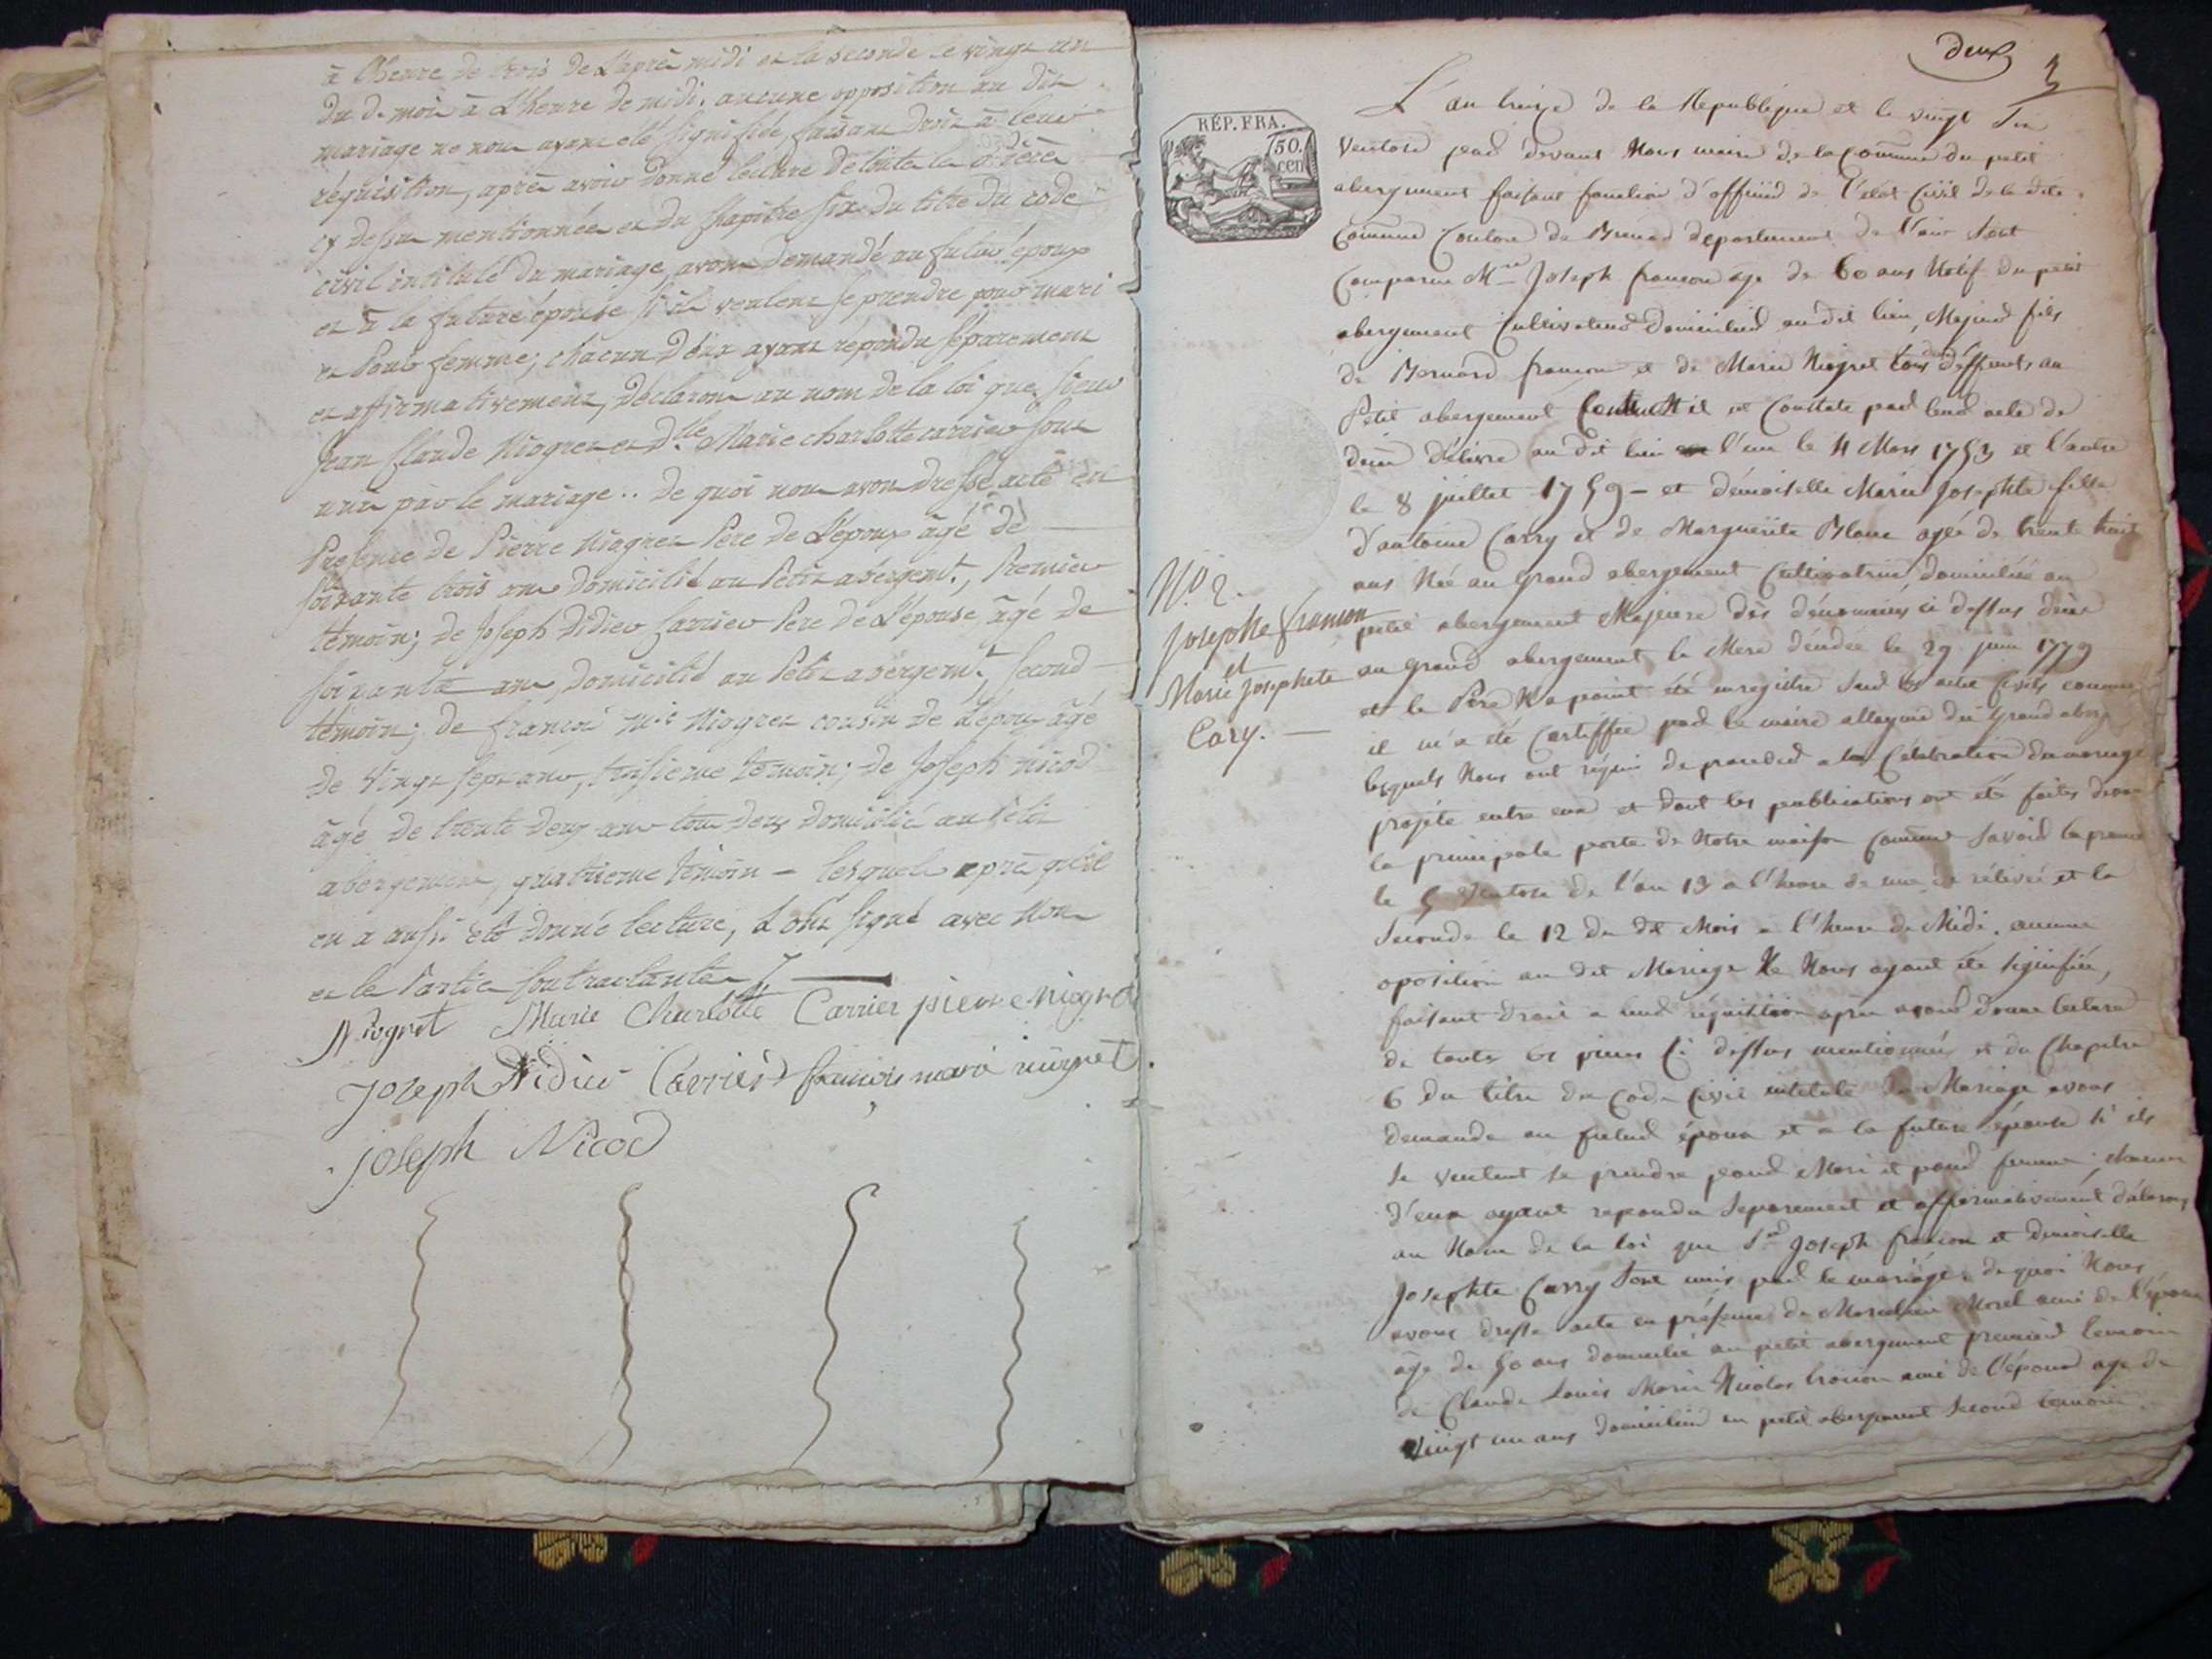 à l'heure de trois de L'après midi et la seconde le vingt un
du d. mois à L'heure de midi. aucune opposition au dit
mariage ne nous ayant été signifiée, faisant droit à leur
réquisition, après avoir donné lecture de toutes les pièces
cy dessus mentionnées et du chapitre six du titre du code
civil intitulé du mariage, avons demandé au futur époux
et à la future épouse s'ils veulent se prendre pour mari
et Pour femme; chacun d'eux ayant répondu séparement
et affirmativement, déclarons au nom de la loi que sieur
Jean Claude Niogret et d.lle Marie charlotte carrier sont
unis par le mariage.. de quoi nous avons dressé acte en
Presence de Pierre Niogret Père de L'époux âgé de
soixante trois ans domicilié au Petit abérgem.t, Premier
témoin; de Joseph Didier Carrier Père de L'épouse âgé de
soixante ans domicilié au Petit abergem.t, second
témoin; de françois m.ie Niogret cousin de L'époux âgé
de vingt sept ans, troisieme témoin; de Joseph nicod
âgé de trente deux ans tous deux domiciliés au Petit
abergement, quatrieme témoin – lesquels après qu'il
en a aussi été donné lecture, L'ont signé avec Nous
et les Parties contractantes
Niogret Marie Charlotte Carrier pierre niogret
Joseph Didier Carrier françois marie niogret
joseph Nicod
deux
3
RÉP. FRA.
50.
cen
L'an treize de la Republique et le vingt six
Ventose par devant Nous maire de la Commune du petit
abergement faisant fonction d'officier de l'état Civil de la dite
Commune Canton de Brenod departement de l'ain sont
Comparu M.re Joseph francon age de 60 ans Natif du petit
abergement Cultivateur domicilié au dit lieu, Majeur fils
de Bernard francon et de Marie Niogret tous deux déffunts au
Petit abergement et Constate par leurs actes de
décès délivré au dit lieu l'un le 11 Mars 1753 et l'autre
le 8 juillet 1759 – et démoiselle Marie Josephte fille
d'antoine Carry et de Marguerite Blanc agée de trente huit
ans Née au Grand abergement Cultivatrice, domiciliée au
petit abergement Majeure dés dénommés ci dessus décès
au Grand abergement la Mere décédée le 29 juin 1779
et le Pere N'a point été enregistre sur les actes civils comme
il m'a été Certiffié par le maire du Grand aberg
lesquels Nous ont réquis de proceder a la Célébration du mariage
projété entre eux et dont les publications ont été faites devant
la principale porte de Notre maison Commune Savoir la premiere
le 5 Ventose de l'an 13 a l'heure de et la
seconde le 12 du dit Mois a l'heure de Midi. aucune
oposition au dit Mariage Ne Nous ayant été signifiée,
faisant droit a leur réquisition après avoir donne lecture
de toutes les pieces Ci dessus mentionnées et du Chapitre
6 du titre du Code Civil intitulé du Mariage avons
demande au futur époux et a la future épouse s'ils
se veulent se prendre pour Mari et pour femme; chacun
d'eux ayant repondu separement et affirmativement déclarons
au Nom de la loi que S.r Joseph francon et demoiselle
Josephte Carry sont unis par le mariage. de quoi Nous
avons dresse acte en présence de Morel ami de l'époux
âge de 50 ans domicilié au petit abergement premier temoin
de Claude Louis Marie Nicolas ami de l'époux age de
Vingt un ans domicilié au petit abergement second temoin
N.o 2.
Josephe francon
et
Marie Josephete
Cary.